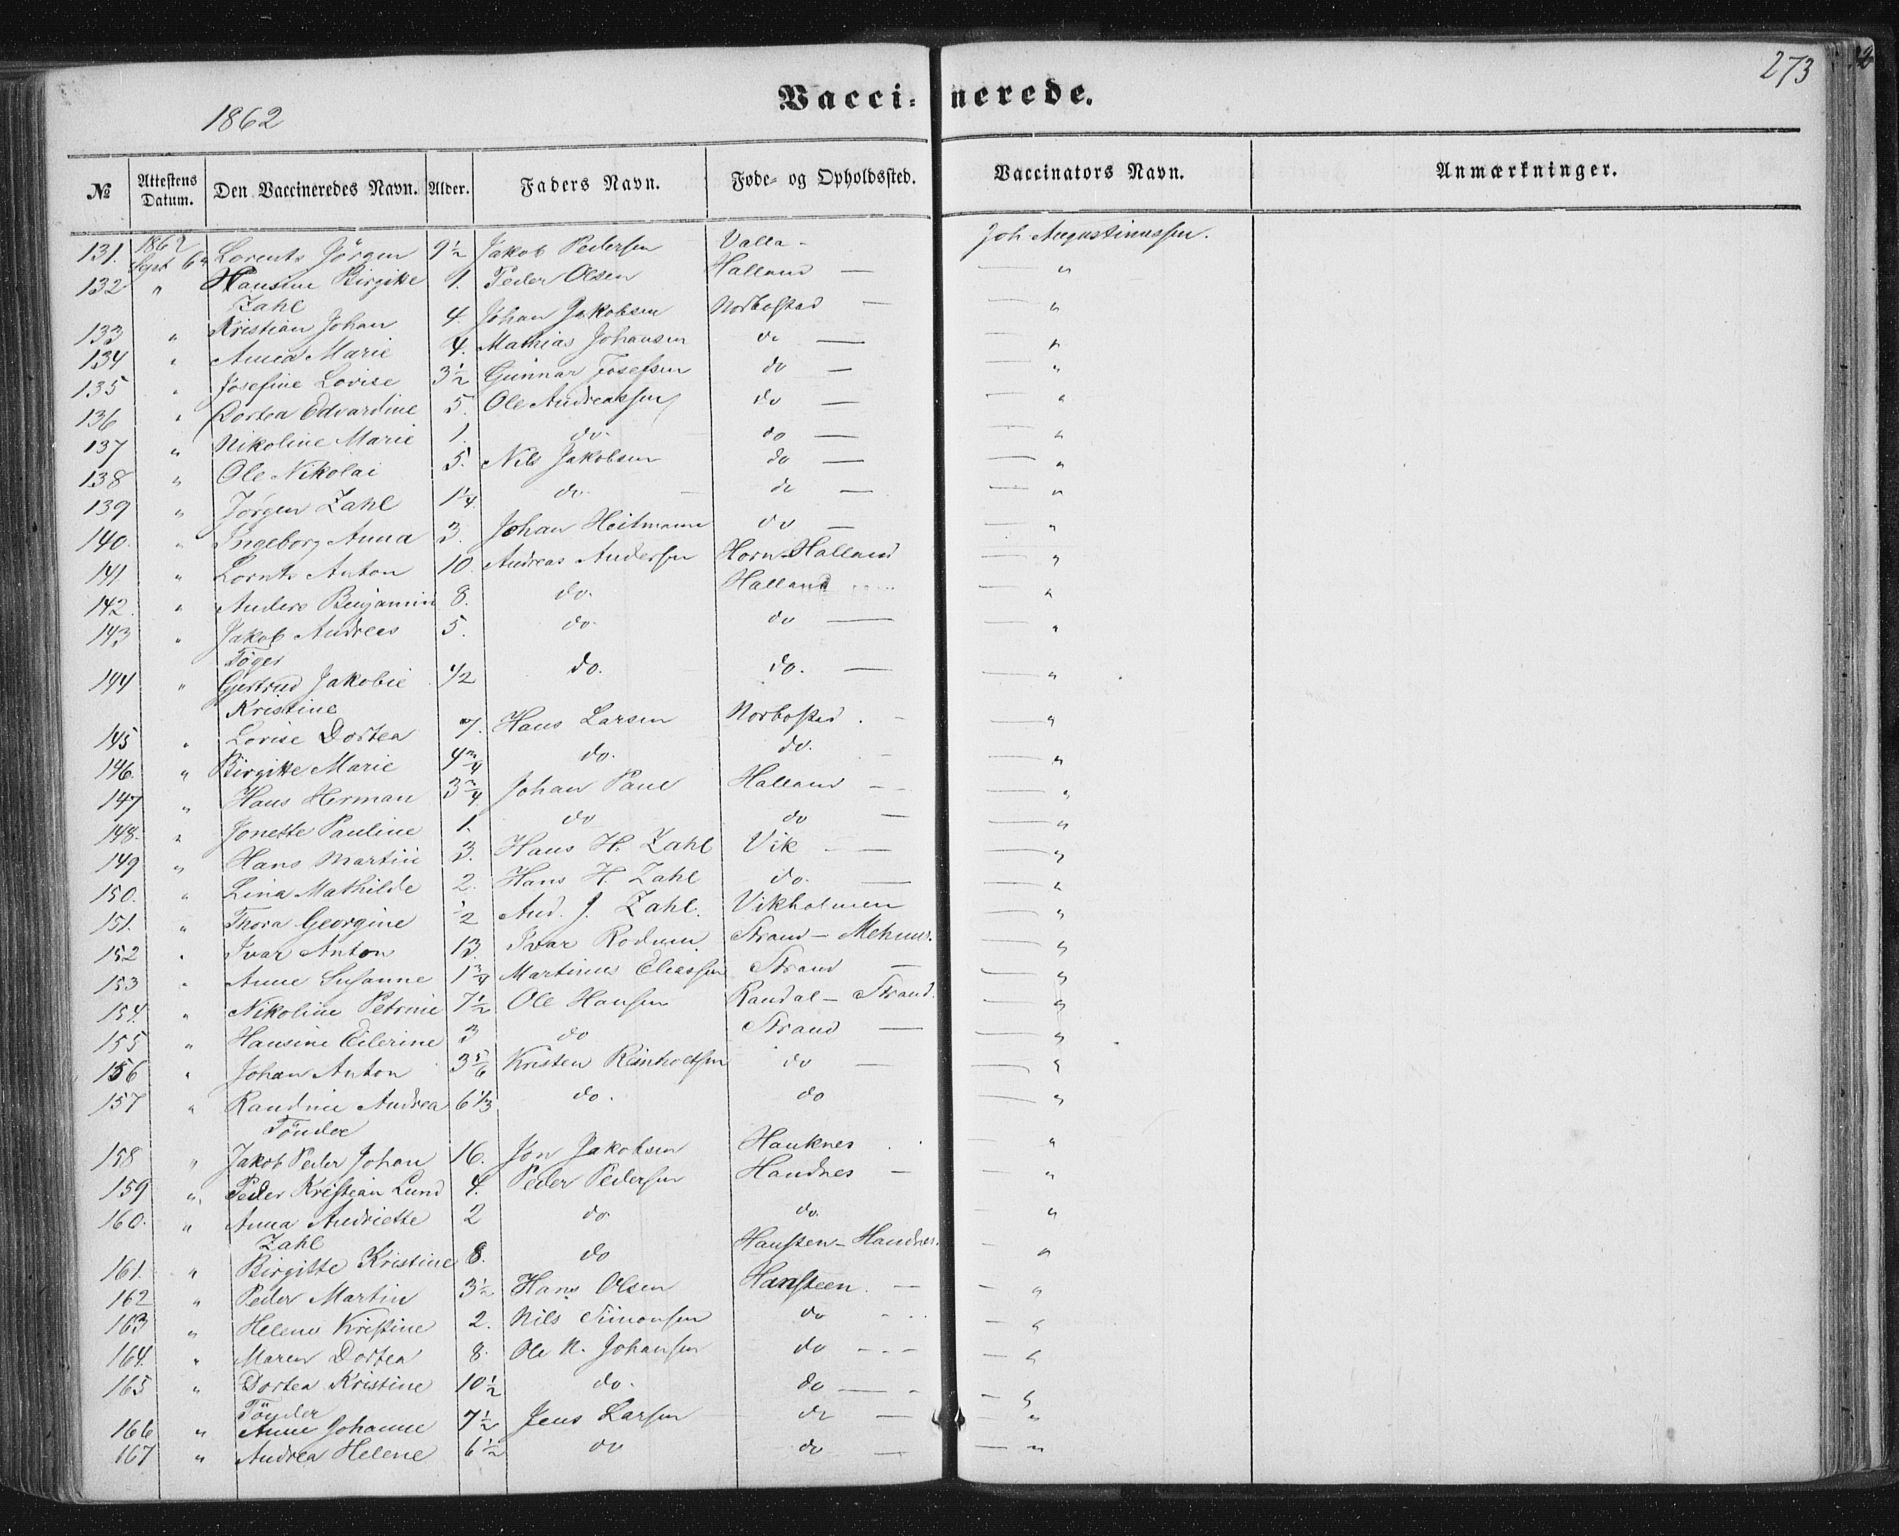 273
1862
Vaccinerede.
№ Attestens Datum. Den Vaccineredes Navn. Alder. Faders Navn. Føde- og Opholdssted. Vaccinators Navn. Anmærkninger.
131. 1862 Sept 6 Lorents Jörgen 9½ Jakob Pedersen Valla - Joh Augustinussen.
132 " Hansine Birgitte Zahl 1. Peder Olsen Halland — — "
133 " Kristian Johan 4. Johan Jakobsen Norbostad — — "
134 " Anna Marie 4. Mathias Johansen do — — "
135 " Josefine Lovise 3½ Gunnar Josefsen do — — "
136 " Dortea Edvardine 5. Ole Andreassen do — — "
137 " Nikoline Marie 1. do do — — "
138 " Ole Nikolai 5. Nils Jakobsen do — — "
139 " Jörgen Zahl 1¼ do do — — "
140. " Ingeborg Anna 3. Johan Heitmann do — — "
141 " Lornts Anton 10. Andreas Andersen Horn-Halland — "
142. " Anders Benjamin 8. do. Halland — "
143 " Jakob Andreas 5. do do — — "
144 " Töger Gjertrud Jakobie ½ do. do. — — "
145 " Kristine Lovise Dortea 7. Hans Larsen Norbostad. — "
146. " Birgitte Marie 4¾ do. do. — "
147 " Hans Herman 3¾ Johan Paul Halland — — "
148. " Jonette Pauline 1. do do — — "
149 " Hans Martin 3. Hans H. Zahl Vik — — "
150. " Lina Mathilde 2. Hans H. Zahl do. — — "
151. " Thora Georgine ½ And. J. Zahl. Vikholmen — "
152 " Ivar Anton 13 Ivar Strand — — "
153 " Anne Susanne 1¾ Martinus Eliassen Strand — — "
154. " Nikoline Petrine 7½ Ole Hansen Randal - Strand. — "
155 " Hansine Eilerine 3 do Strand — — "
156 " Johan Anton 3⅚ Kristen Reinholtsen do — — "
157 " Randine Andrea 6⅓ do. do — "
158 " Tönder Jakob Peder Johan 16. Jon Jakobsen Hauknes. "
159 " Peder Kristjan Lund 4. Peder Pedersen Handnes — "
160. " Anna Andriette 2 do do. "
161. " Zahl Birgitte Kristine 8. do Hansten - Handnes. "
162 " Peder Martin 3½ Hans Olsen Hansteen. — — "
163 " Helene Kristine 2. Nils Simonsen do — "
164. " Maren Dortea 8. Ole N. Johansen do — — "
165 " Dortea Kristine 10½ do. do — — "
166 " Tönder Anne Johanne 7½ Jens Larsen do — "
167 " Andrea Helene 6½ do do — — "